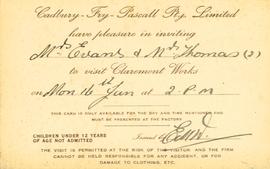 Cadbury-Fry-Pascall Pty. Limited
have pleasure in inviting
Mrs Evans & Mrs Thomas (2)
to visit Claremont Works
on Mon 16th Jan at 2 P.M
THIS CARD IS ONLY AVAILABLE FOR THE DAY AND TIME MENTIONED AND
MUST BE PRESENTED AT THE FACTORY
CHILDREN UNDER 12 YEARS
OF AGE NOT ADMITTED
Issued
THE VISIT IS PERMITTED AT THE RISK OF THE VISITOR AND THE FIRM
CANNOT BE HELD RESPONSIBLE FOR ANY ACCIDENT, OR FOR
DAMAGE TO CLOTHING, ETC.